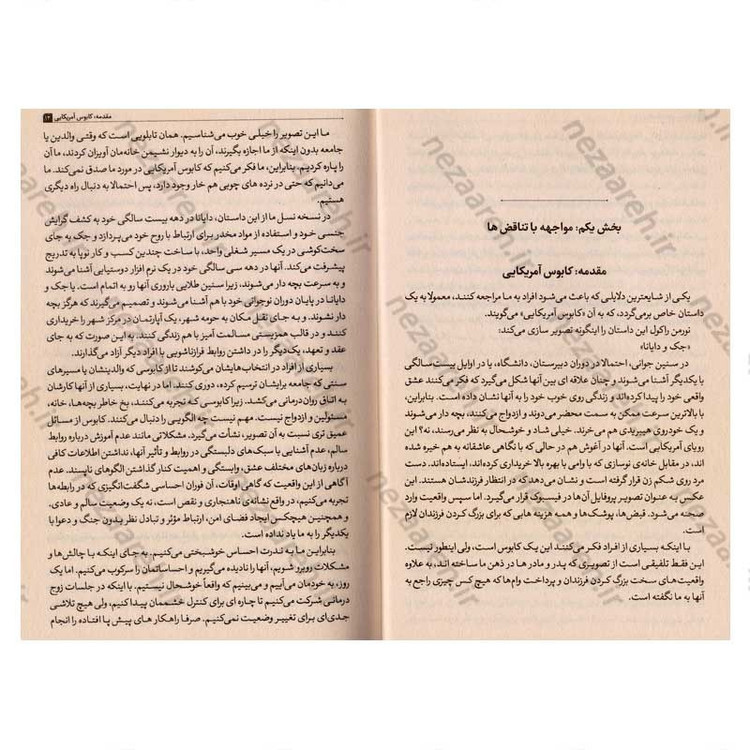 بخش یکم: مواجهه با تناقض ها
مقدمه: کابوس آمریکایی
یکی از شایعترین دلایلی که باعث می‌شود افراد به ما مراجعه کنند، معمولا به یک
داستان خاص برمی‌گردد، که به آن «کابوس آمریکایی» می‌گویند.
نورمن راکول این داستان را اینگونه تصویر سازی می‌کند:
«جک و دایانا»
در سنین جوانی، احتمالا در دوران دبیرستان، دانشگاه، یا در اوایل بیست سالگی
با یکدیگر آشنا می‌شوند و چنان علاقه ای بین آنها شکل می‌گیرد که فکر می‌کنند عشق
واقعی خود را پیدا کرده‌اند و زندگی روی خوب خود را به آنها نشان داده است. بنابراین،
با بالاترین سرعت ممکن به سمت محضر می‌دوند و ازدواج می‌کنند، بچه دار می‌شوند
و یک خودروی هیبریدی هم می‌خرند. خیلی شاد و خوشحال به نظر می‌رسند، نه؟ این
رویای آمریکایی است. آنها در آغوش هم در حالی که با نگاهی عاشقانه به هم خیره شده
اند، در مقابل خانه‌ی نوسازی که با وامی با بهره بالا خریداری کرده‌اند، ایستاده‌اند. دست
مرد روی شکم زن قرار گرفته است و نشان می‌دهد که در انتظار فرزندشان هستند. این
عکس به عنوان تصویر پروفایل آن‌ها در فیسبوک قرار می‌گیرد. اما سپس واقعیت وارد
صحنه می‌شود. قبض‌ها، پوشک‌ها و همه هزینه هایی که برای بزرگ کردن فرزندان لازم
است.
با اینکه بسیاری از افراد فکر می‌کنند این یک کابوس است، ولی اینطور نیست.
این فقط تلفیقی است از تصویری که پدر و مادر ها در ذهن ما ساخته اند، به علاوه
واقعیت های سخت بزرگ کردن فرزندان و پرداخت وام‌ها که هیچ کس چیزی راجع به
آنها به ما نگفته است.
مقدمه: کابوس آمریکایی ۱۳
ما این تصویر را خیلی خوب می‌شناسیم. همان تابلویی است که وقتی والدین یا
جامعه بدون اینکه از ما اجازه بگیرند، آن را به دیوار نشیمن خانه‌مان آویزان کردند، ما آن
را پاره کردیم. بنابراین، ما فکر می‌کنیم که کابوس آمریکایی در مورد ما صدق نمی‌کند. ما
می‌دانیم که حتی در نرده های چوبی هم خار وجود دارد، پس احتمالا به دنبال راه دیگری
هستیم.
در نسخه نسل ما از این داستان، دایانا در دهه بیست سالگی خود به کشف گرایش
جنسی خود و استفاده از مواد مخدر برای ارتباط با روح خود می‌پردازد و جک به جای
سخت‌کوشی در یک مسیر شغلی واحد، با ساخت چندین کسب و کار نوپا به تدریج
پیشرفت می‌کند. آنها در دهه سی سالگی خود در یک نرم افزار دوستیابی آشنا می‌شوند
و به سرعت بچه دار می‌شوند، زیرا سنین طلایی باروری آنها رو به اتمام است. یا جک و
دایانا در پایان دوران نوجوانی خود با هم آشنا می‌شوند و تصمیم می‌گیرند که هرگز بچه
دار نشوند. و به جای نقل مکان به حومه شهر، یک آپارتمان در مرکز شهر را خریداری
و در قالب همزیستی مسالمت آمیز با هم زندگی کنند. به این صورت که به جای
عقد و تعهد، یکدیگر را در داشتن روابط فرازناشویی با افراد دیگر آزاد می‌گذارند.
بسیاری از افراد در انتخاب‌هایشان می‌کوشند تا از کابوسی که والدینشان یا باورهای
سنتی که جامعه برایشان ترسیم کرده، دوری کنند. اما در نهایت، بسیاری از آنها کارشان
به اتاق روان‌درمانی می‌کشد. زیرا کابوسی که تجربه می‌کنند، بخ خاطر بچه‌ها، خانه،
مسئولین و ازدواج نیست. مهم نیست چه الگویی را دنبال می‌کنند. کابوس از مسائل
عمیق تری نسبت به آن تصویر، نشأت می‌گیرد. مشکلاتی مانند عدم آموزش درباره روابط
سالم، عدم آشنایی با سبک‌های دلبستگی در روابط و تأثیر آنها، نداشتن اطلاعات کافی
درباره زبان‌های مختلف عشق، وابستگی و اهمیت کنار گذاشتن الگوهای ناپسند. عدم
آگاهی از این واقعیت که گاهی اوقات، آن فوران احساسی شگفت‌انگیزی که در رابطه‌ها
تجربه می‌کنیم، در واقع نشانه‌ی ناهنجاری و نقص است، نه یک وضعیت سالم و عادی.
و همچنین هیچکس ایجاد فضای امن، ارتباط مؤثر و تبادل نظر بدون جنگ و دعوا با
یکدیگر را به ما یاد نداده است.
بنابراین ما به ندرت احساس خوشبختی می‌کنیم. به جای اینکه با چالش‌ها و
مشکلات روبرو شویم، آنها را نادیده می‌گیریم و احساساتمان را سرکوب می‌کنیم. اما یک
روز، به خودمان می‌آییم و می‌بینیم که واقعاً خوشحال نیستیم. با اینکه در جلسات زوج
درمانی شرکت می‌کنیم تا چاره ای برای کنترل خشممان پیدا کنیم، ولی هیچ تلاشی
جدی‌ای برای تغییر وضعیت نمی‌کنیم. صرفا راهکار های پیش پا افتاده را انجام
nezaareh.ir